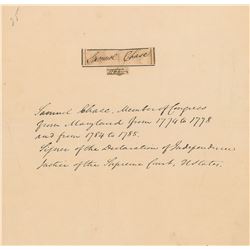 Samuel Chase
Samuel Chase, Member of Congress
from Maryland from 1774 to 1778
and from 1784 to 1785.
Signer of the Declaration of Independence
Justice of the Supreme Court, U States.